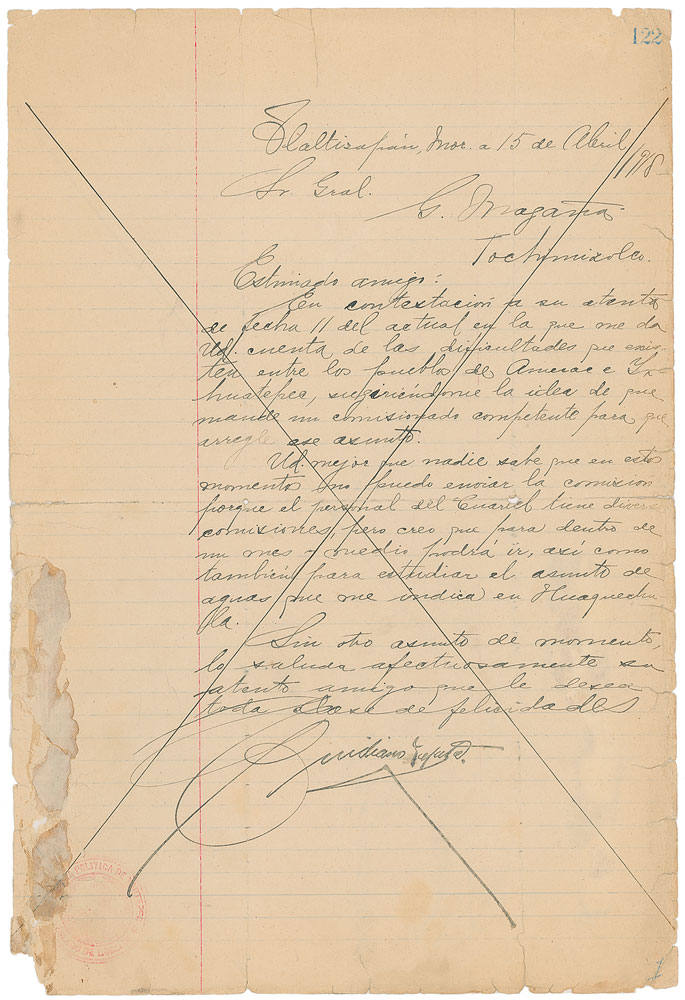 122
Tlaltizapán, Mor. a 15 de Abril
1918-
Sr. Gral.
G. Magaña.
Tochimizolco.
Estimado amigo:
En contestación a su atenta
de fecha 11 del actual en la que me da
Ud. cuenta de las dificultades que exis-
ten entre los pueblos de Amecac e Ix-
huatepec, sugiriéndome la idea de que
mande un comisionado competente para que
arregle ese asunto.
Ud. mejor que nadie sabe que en estos
momentos no puedo enviar la comisión
porque el personal del Cuartel tiene diversas
comisiones, pero creo que para dentro de
un mes y medio podrá ir, así como
también para estudiar el asunto de
aguas que me indica en Huaquechu-
la.
Sin otro asunto de momento,
lo saluda afectuosamente su
atento amigo que le desea
toda clase de felicidades
Emiliano Zapata.
POLITICA DE